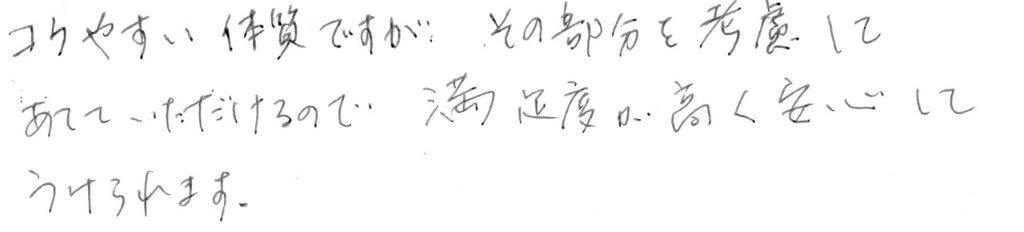 コケやすい体質ですが、その部分を考慮して
あてていただけるので、満足度が高く安心して
うけられます。